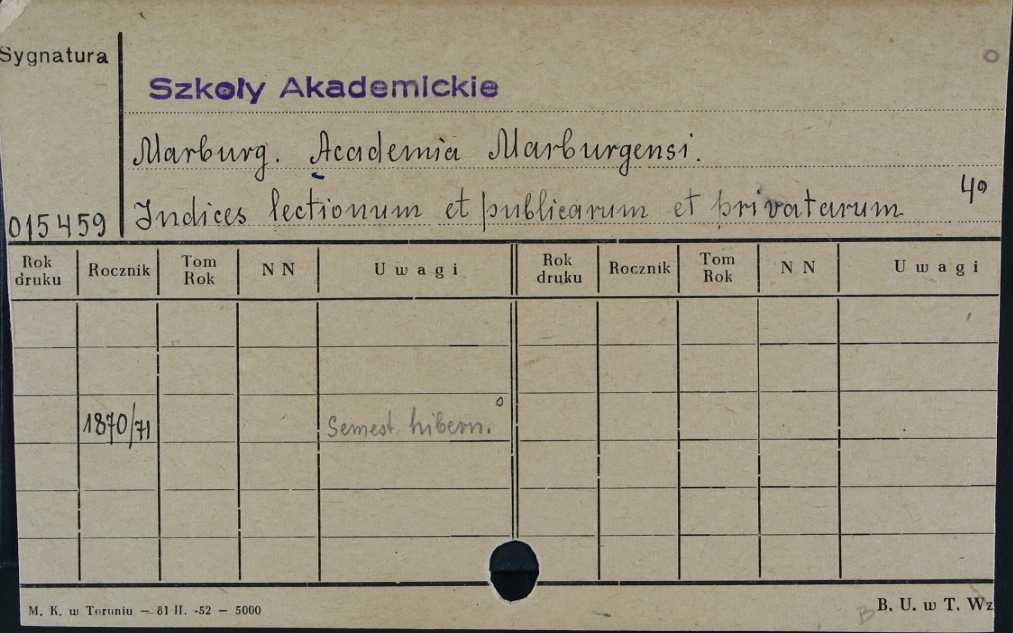 Sygnatura
Szkoły Akademickie
Marburg. Academia Marburgensi.
015459
Indices lectionum et publicarum et privatarum 4º
Rok druku Rocznik Tom Rok N N U w a g i Rok druku Rocznik Tom Rok N N U w a g i
1870/71 Semest. hibern.
M. K. w Toruniu — 81 II. -52 — 5000
B. U. w T. Wz